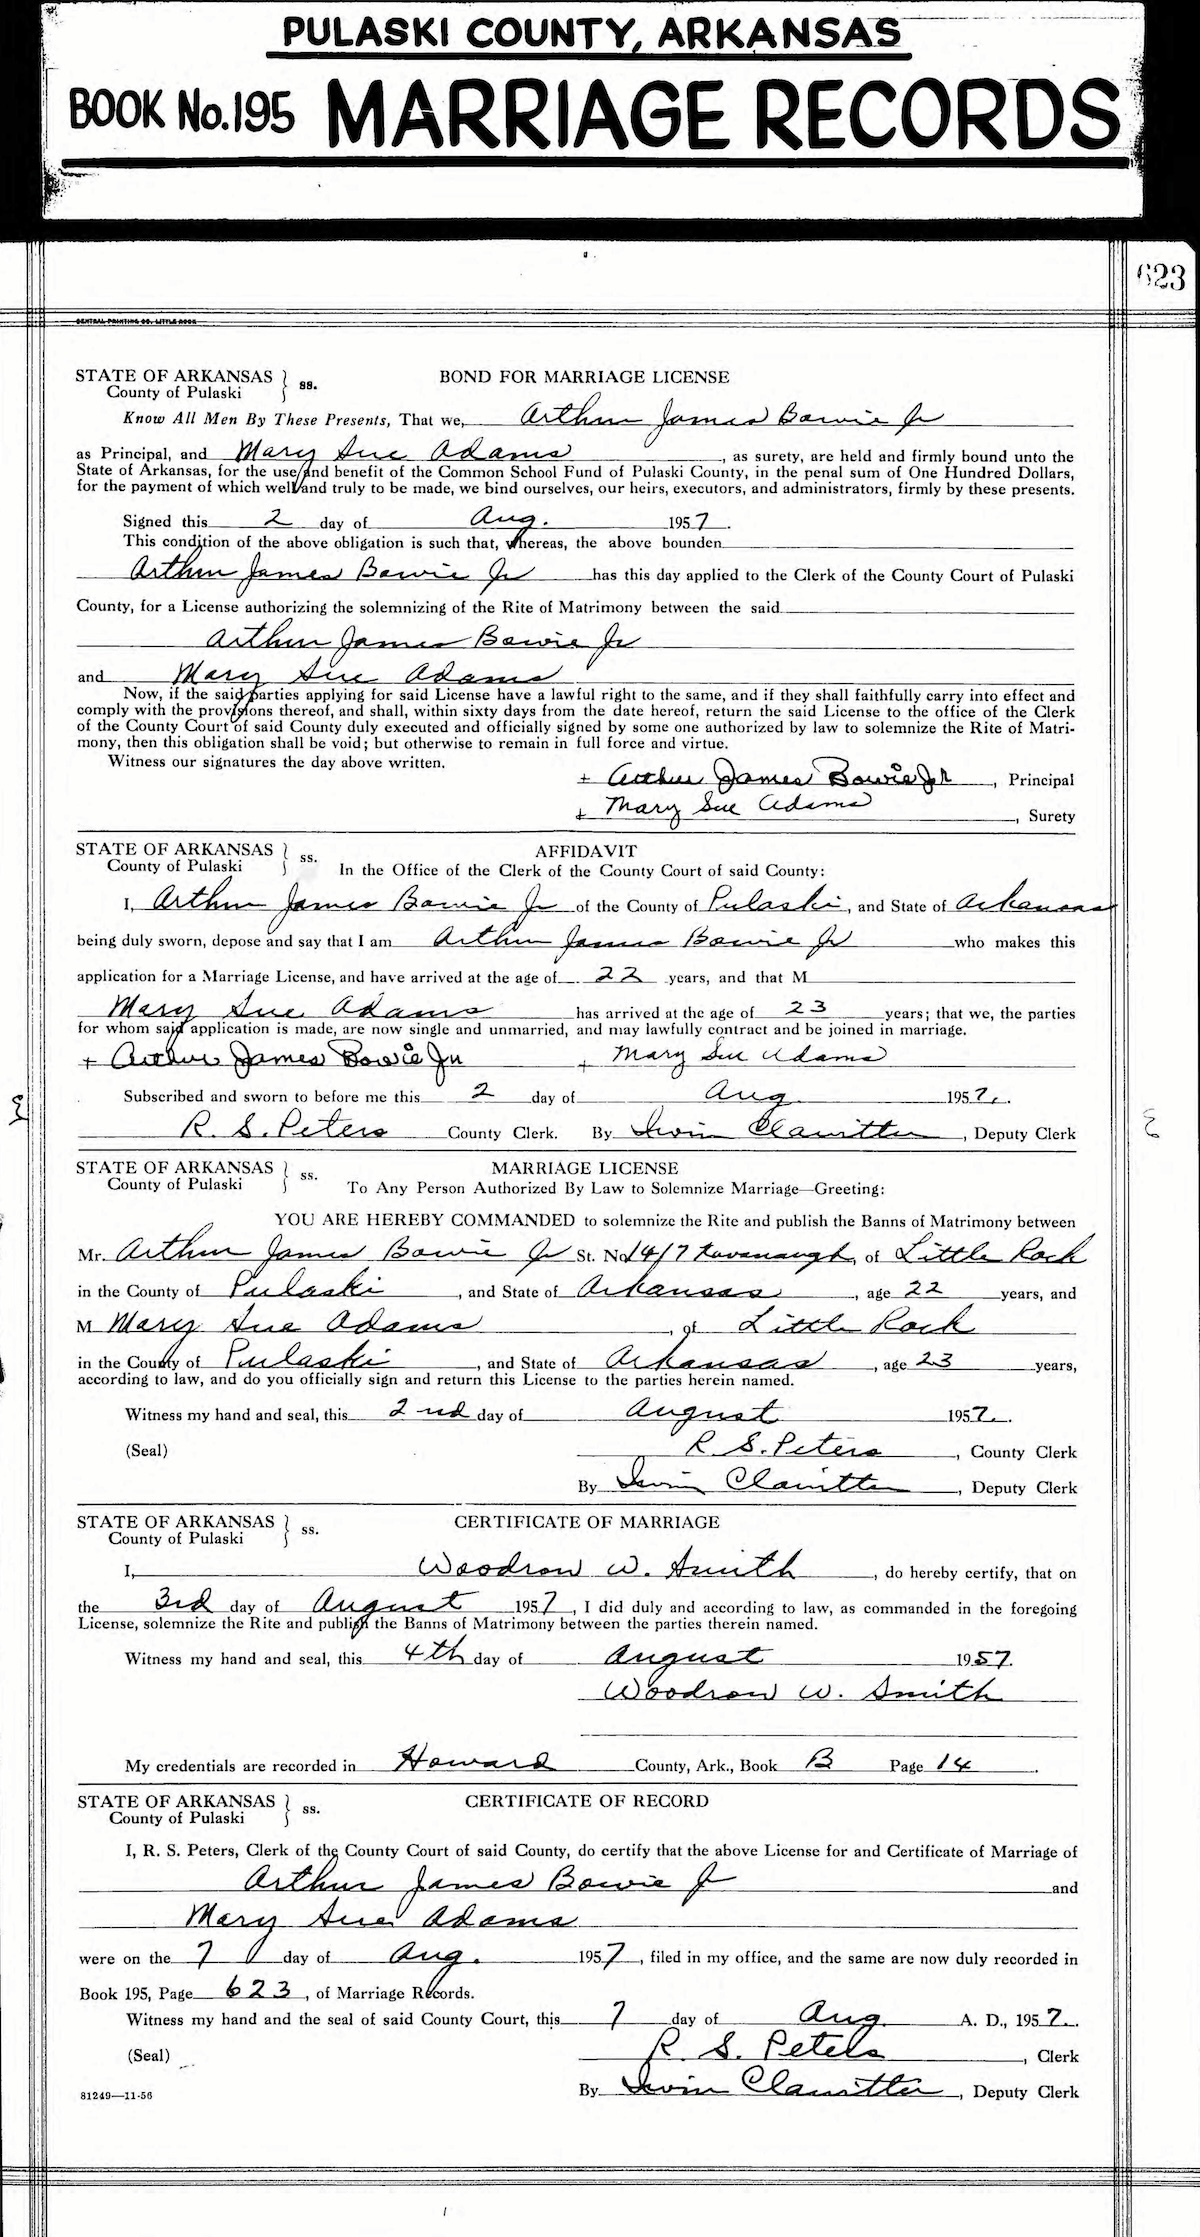 PULASKI COUNTY, ARKANSAS
BOOK No. 195 MARRIAGE RECORDS
623
CENTRAL PRINTING CO. LITTLE ROCK
STATE OF ARKANSAS
County of Pulaski
ss.
BOND FOR MARRIAGE LICENSE
Know All Men By These Presents, That we, Arthur James Bowie Jr
as Principal, and Mary Sue Adams, as surety, are held and firmly bound unto the
State of Arkansas, for the use and benefit of the Common School Fund of Pulaski County, in the penal sum of One Hundred Dollars,
for the payment of which well and truly to be made, we bind ourselves, our heirs, executors, and administrators, firmly by these presents.
Signed this 2 day of Aug. 1957.
This condition of the above obligation is such that, whereas, the above bounden
Arthur James Bowie Jr has this day applied to the Clerk of the County Court of Pulaski
County, for a License authorizing the solemnizing of the Rite of Matrimony between the said
Arthur James Bowie Jr
and Mary Sue Adams
Now, if the said parties applying for said License have a lawful right to the same, and if they shall faithfully carry into effect and
comply with the provisions thereof, and shall, within sixty days from the date hereof, return the said License to the office of the Clerk
of the County Court of said County duly executed and officially signed by some one authorized by law to solemnize the Rite of Matri-
mony, then this obligation shall be void; but otherwise to remain in full force and virtue.
Witness our signatures the day above written.
+ Arthur James Bowie Jr, Principal
+ Mary Sue Adams, Surety
STATE OF ARKANSAS
County of Pulaski
ss.
AFFIDAVIT
In the Office of the Clerk of the County Court of said County:
I, Arthur James Bowie Jr of the County of Pulaski, and State of Arkansas
being duly sworn, depose and say that I am Arthur James Bowie Jr who makes this
application for a Marriage License, and have arrived at the age of 22 years, and that M
Mary Sue Adams has arrived at the age of 23 years; that we, the parties
for whom said application is made, are now single and unmarried, and may lawfully contract and be joined in marriage.
+ Arthur James Bowie Jr + Mary Sue Adams
Subscribed and sworn to before me this 2 day of Aug 1957.
R. S. Peters County Clerk. By Irvin Clawitter, Deputy Clerk
STATE OF ARKANSAS
County of Pulaski
ss.
MARRIAGE LICENSE
To Any Person Authorized By Law to Solemnize Marriage—Greeting:
YOU ARE HEREBY COMMANDED to solemnize the Rite and publish the Banns of Matrimony between
Mr. Arthur James Bowie Jr St. No 1417 Kavanaugh, of Little Rock
in the County of Pulaski, and State of Arkansas, age 22 years, and
M Mary Sue Adams, of Little Rock
in the County of Pulaski, and State of Arkansas, age 23 years,
according to law, and do you officially sign and return this License to the parties herein named.
Witness my hand and seal, this 2nd day of August 1957.
(Seal) R. S. Peters, County Clerk
By Irvin Clawitter, Deputy Clerk
STATE OF ARKANSAS
County of Pulaski
ss.
CERTIFICATE OF MARRIAGE
I, Woodrow W. Smith, do hereby certify, that on
the 3rd day of August 1957, I did duly and according to law, as commanded in the foregoing
License, solemnize the Rite and publish the Banns of Matrimony between the parties therein named.
Witness my hand and seal, this 4th day of August 1957.
Woodrow W. Smith
My credentials are recorded in Howard County, Ark., Book B Page 14.
STATE OF ARKANSAS
County of Pulaski
ss.
CERTIFICATE OF RECORD
I, R. S. Peters, Clerk of the County Court of said County, do certify that the above License for and Certificate of Marriage of
Arthur James Bowie Jr and
Mary Sue Adams
were on the 7 day of Aug. 1957, filed in my office, and the same are now duly recorded in
Book 195, Page 623, of Marriage Records.
Witness my hand and the seal of said County Court, this 7 day of Aug A. D., 1957.
(Seal) R. S. Peters, Clerk
81249—11-56 By Irvin Clawitter, Deputy Clerk